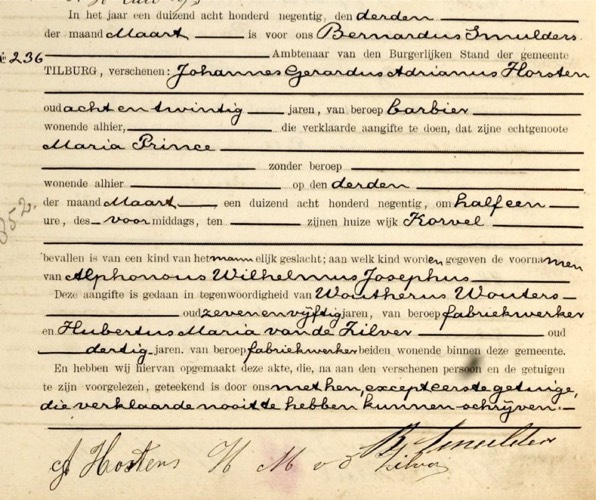 In het jaar een duizend acht honderd negentig, den derden
der maand Maart is voor ons Bernardus Smulders
Nº 236 Ambtenaar van den Burgerlijken Stand der gemeente
TILBURG, verschenen: Johannes Gerardus Adrianus Horsten
oud acht en twintig jaren, van beroep barbier
wonende alhier, die verklaarde aangifte te doen, dat zijne echtgenoote
Maria Prince
zonder beroep
wonende alhier op den derden
der maand Maart een duizend acht honderd negentig, om half een
ure, des voormiddags, ten zijnen huize wijk Korvel
352.
bevallen is van een kind van het mannelijk geslacht; aan welk kind worden gegeven de voornamen
van Alphonsus Wilhelmus Josephus
Deze aangifte is gedaan in tegenwoordigheid van Woutherus Wouters
oud zeven en vijftig jaren, van beroep fabriekwerker
en Hubertus Maria van de Zilver oud
dertig jaren, van beroep fabriekwerker beiden wonende binnen deze gemeente.
En hebben wij hiervan opgemaakt deze akte, die, na aan den verschenen persoon en de getuigen
te zijn voorgelezen, geteekend is door ons met hen, except eerste getuige,
die verklaarde nooit te hebben kunnen schrijven.
B. Smulders
H M v d Zilver